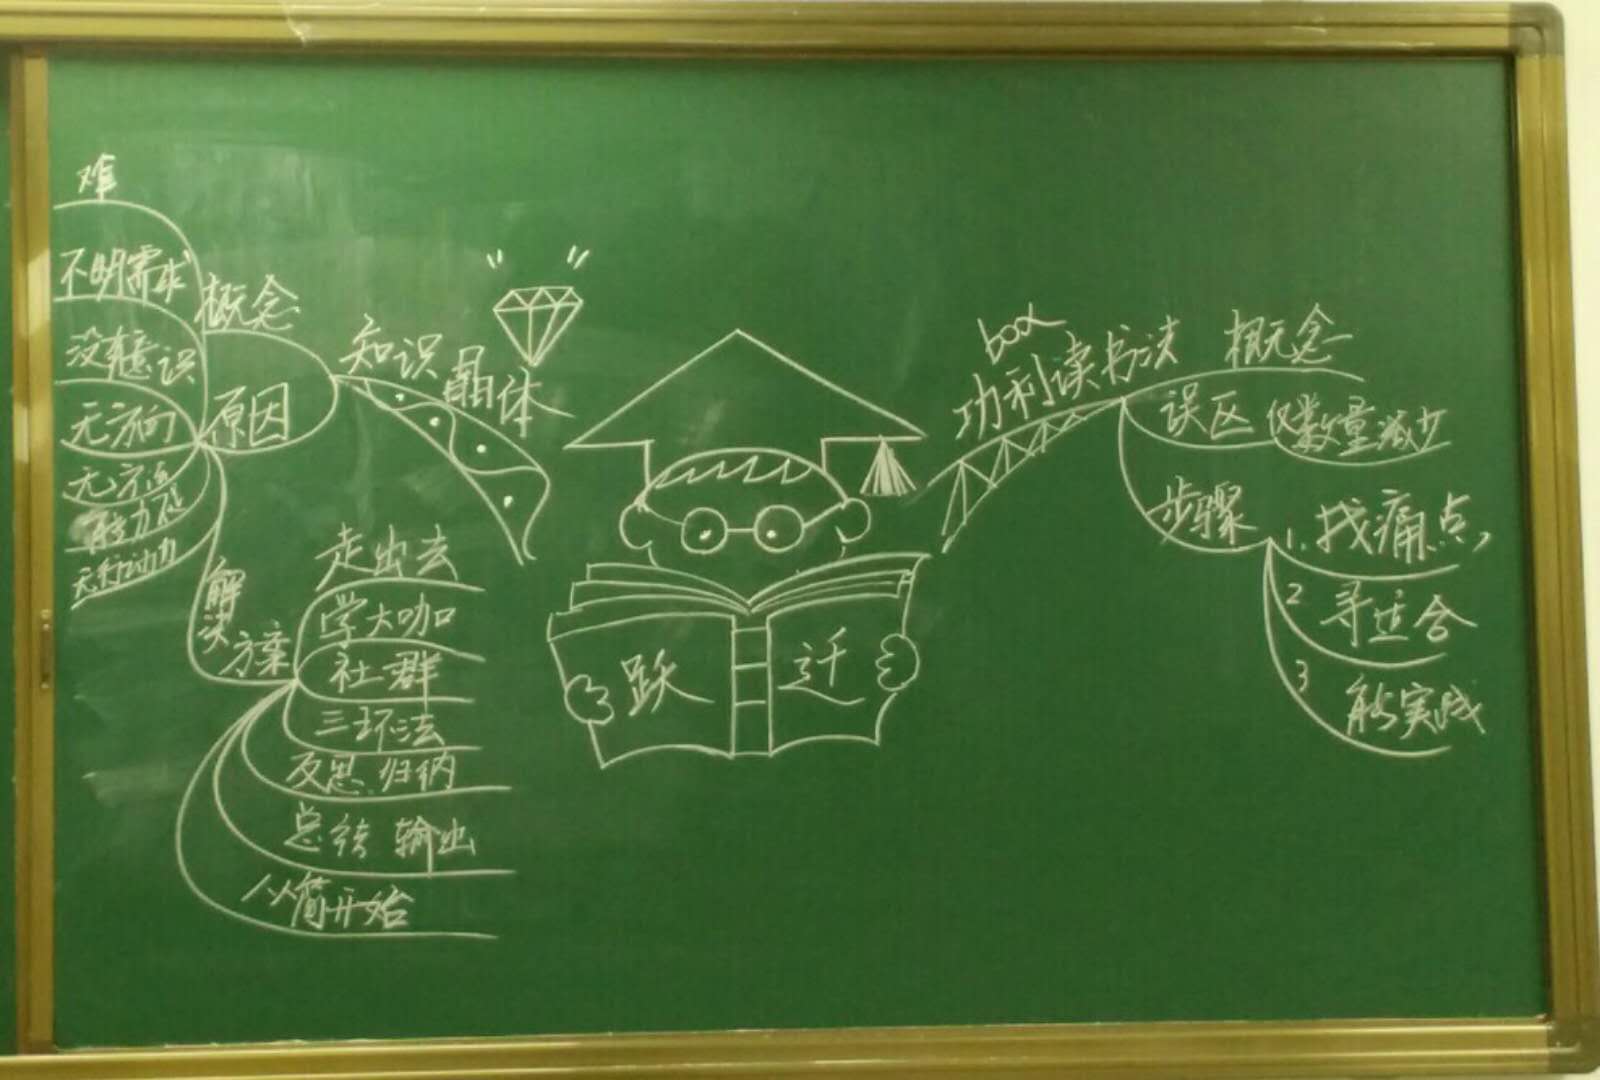 难
不明需求
没有意识
无方向
无方法
能力不足
无行动力
概念
原因
知识晶体
解决方案
走出去
学大咖
社群
三环法
反思、归纳
总结 输出
从简开始
跃迁
book
功利读书法
概念
误区 仅数量减少
步骤
1. 找痛点,
2 寻适合
3 能实践